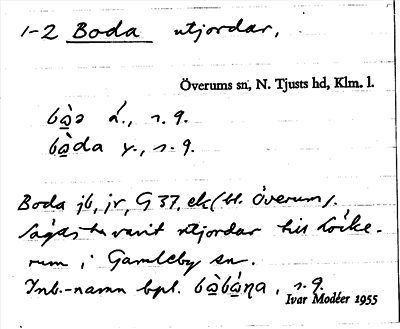 1-2 Boda utjordar,
Överums sn, N. Tjusts hd, Klm. l.
bò̲ə ä., s. g.
bò̲da y., s. g.
Boda jb, jr, G 37, ek (bl. Överum).
Sägas ha varit utjordar till Löcke-
rum i Gamleby sn.
Inb.-namn bpl.
Ivar Modéer 1955